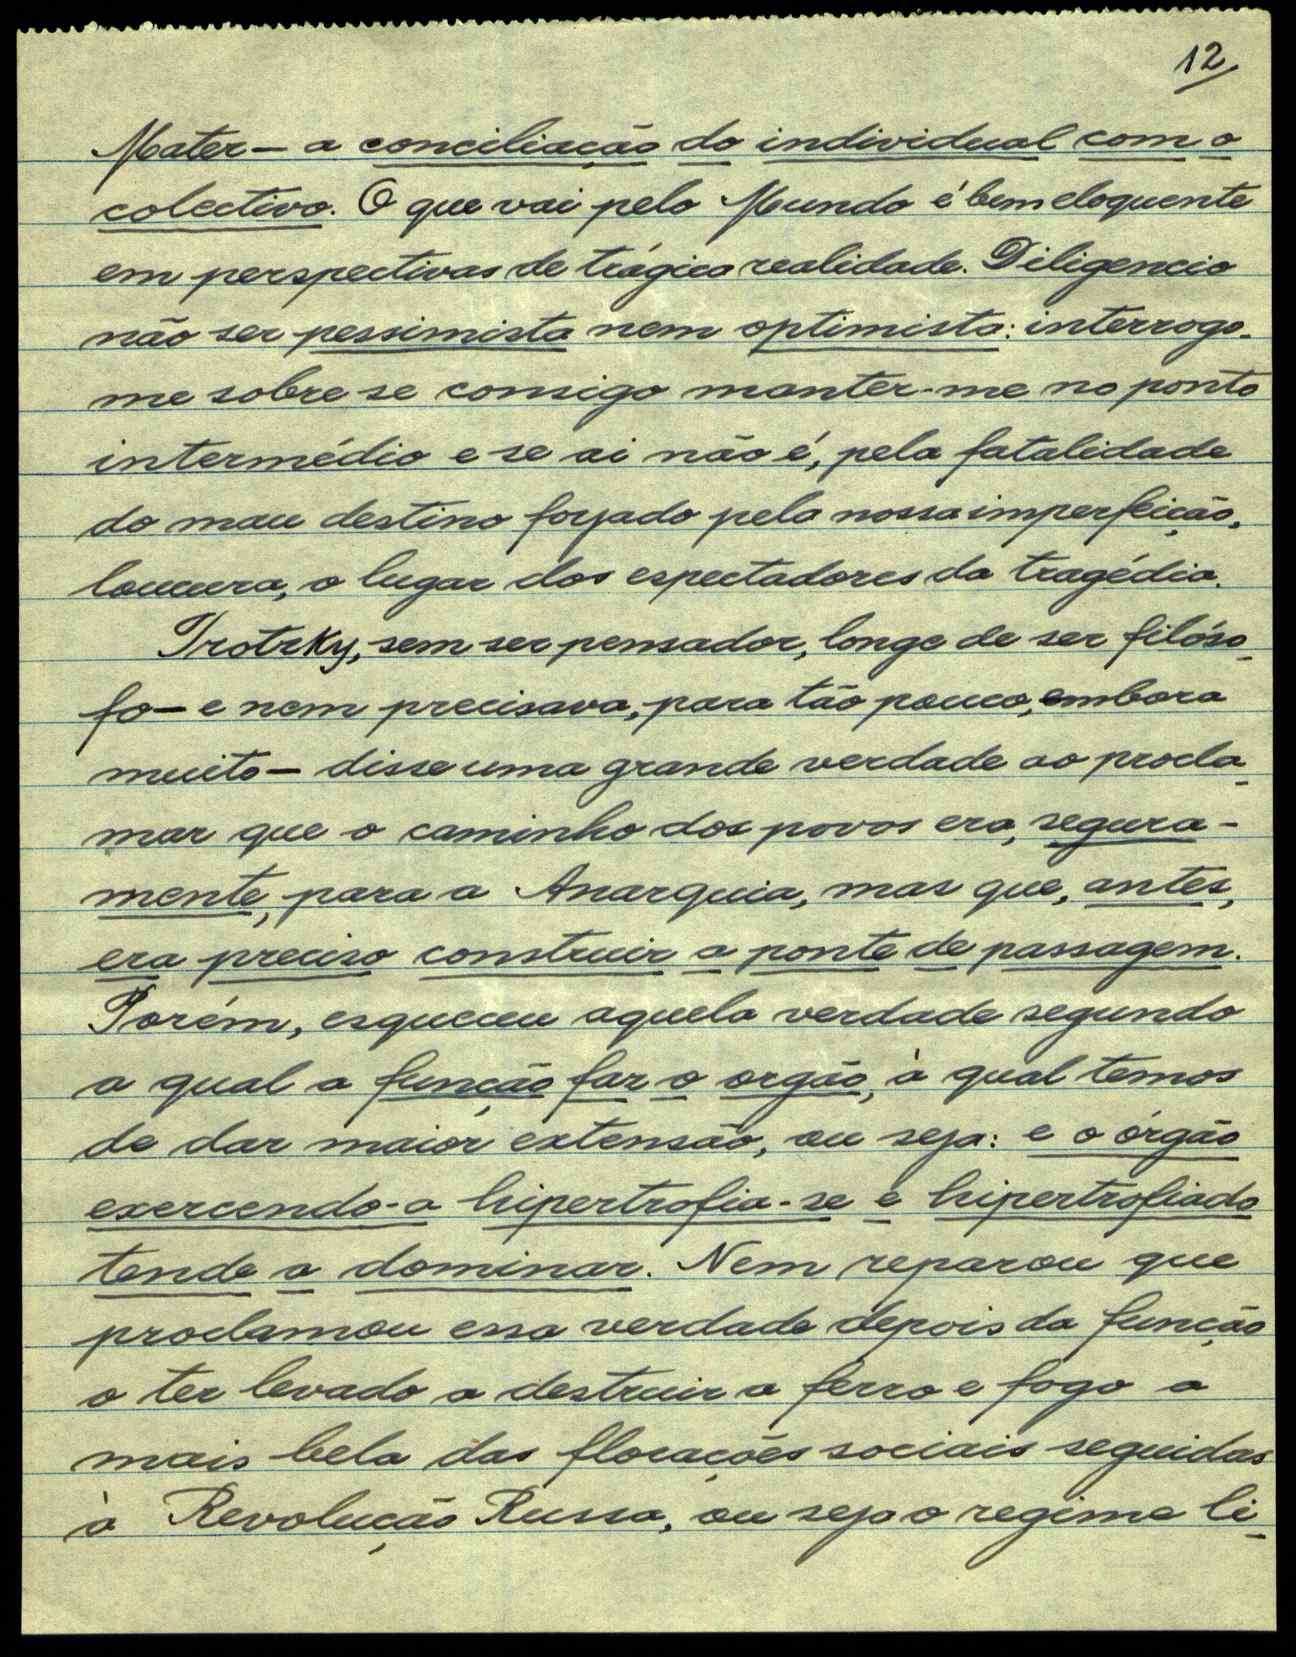 12
Mater — a conciliação do individual com o
colectivo. O que vai pelo Mundo é bem eloquente
em perspectivas de trágica realidade. Diligencio
não ser pessimista nem optimista: interrogo-
me sobre se consigo manter-me no ponto
intermédio e se ai não é, pela fatalidade
do mau destino forjado pela nossa imperfeição,
loucura, o lugar dos espectadores da tragédia.
Trotzky, sem ser pensador, longe de ser filóso-
fo — e nem precisava, para tão pouco, embora
muito — disse uma grande verdade ao procla-
mar que o caminho dos povos era, segura-
mente, para a Anarquia, mas que, antes,
era preciso construir a ponte de passagem.
Porém, esqueceu aquela verdade segundo
a qual a função faz o orgão, à qual temos
de dar maior extensão, ou seja: e o órgão
exercendo-a hipertrofia-se e hipertrofiado
tende a dominar. Nem reparou que
proclamou essa verdade depois da função
o ter levado a destruir a ferro e fogo a
mais bela das florações sociais seguidas
à Revolução Russa, ou seja o regime li-